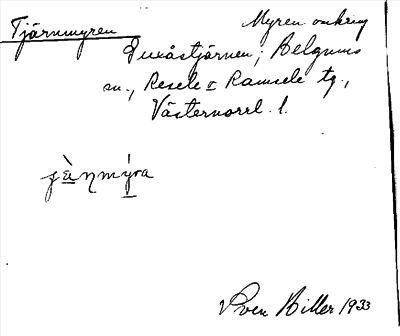 Tjärnmyren Myren omkring
Guxåstjärnen; Helgums
sn., Resele o Ramsele tg.,
Västernorrl. l.
jὰηmýra
Sven Hiller 1933